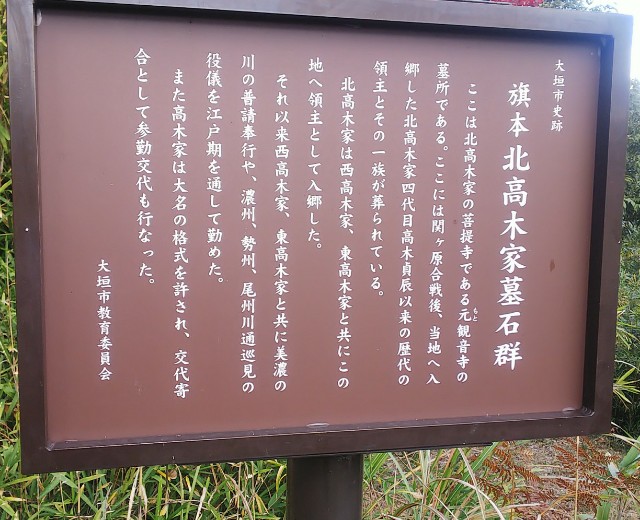 大垣市史跡
旗本北高木家墓石群
ここは北高木家の菩提寺である元観音寺の
もと
墓所である。ここには関ヶ原合戦後、当地へ入
郷した北高木家四代目高木貞辰以来の歴代の
領主とその一族が葬られている。
北高木家は西高木家、東高木家と共にこの
地へ領主として入郷した。
それ以来西高木家、東高木家と共に美濃の
川の普請奉行や、濃州、勢州、尾州川通巡見の
役儀を江戸期を通して勤めた。
また高木家は大名の格式を許され、交代寄
合として参勤交代も行なった。
大垣市教育委員会